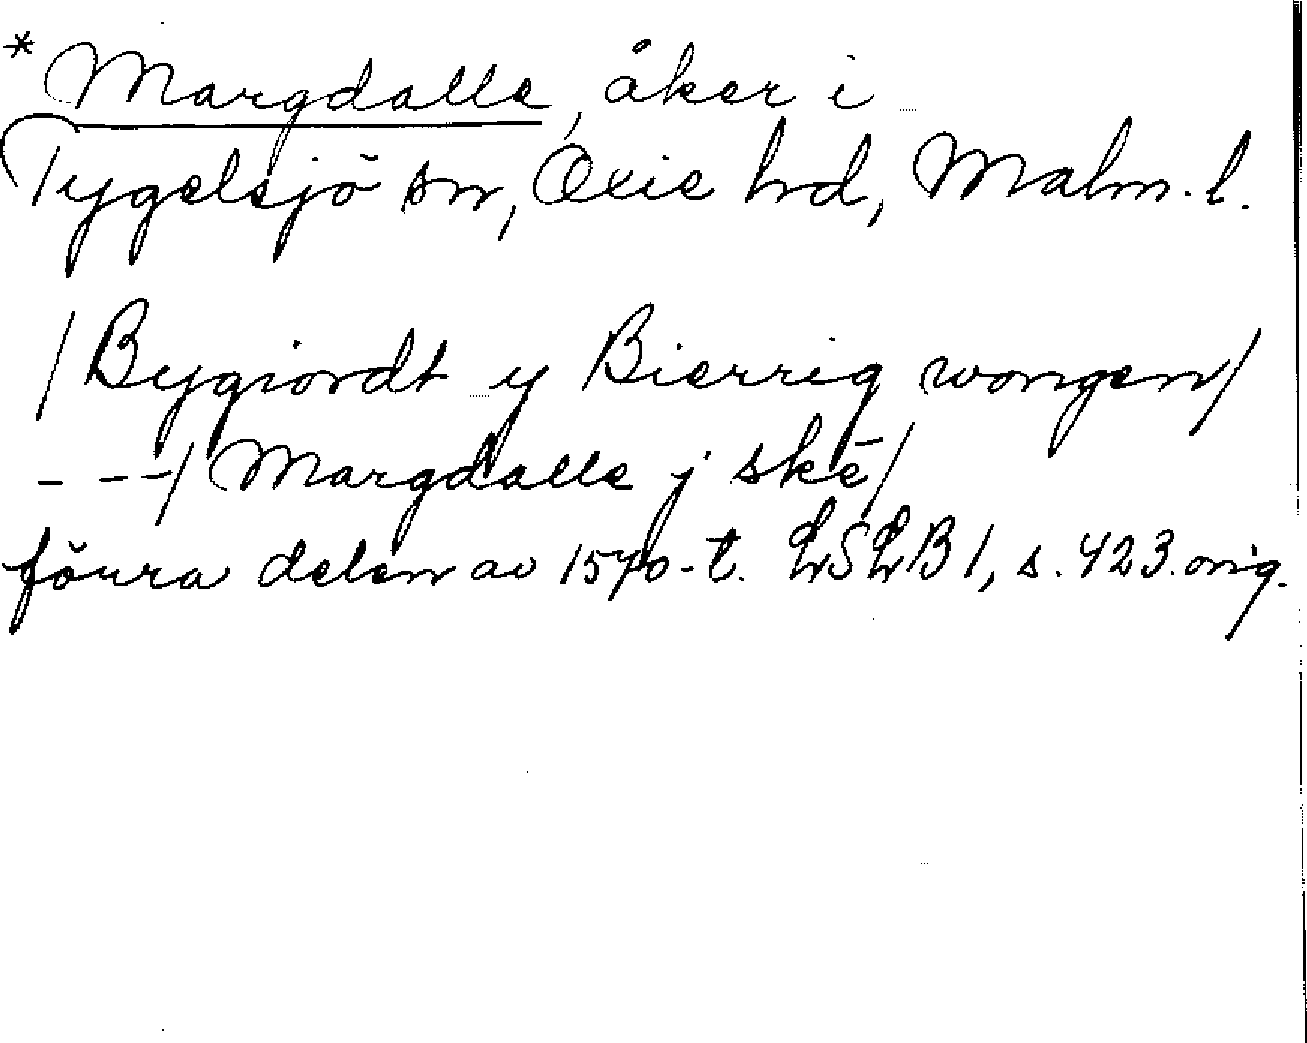 * Margdalle, åker i
Tygelsjö sn, Oxie hd, Malm. l.
/Bygiordt y Bierrig wongen/
- - -/Margdalle j skē/
förra delen av 1570-t. LSLB 1, s. 423. orig.